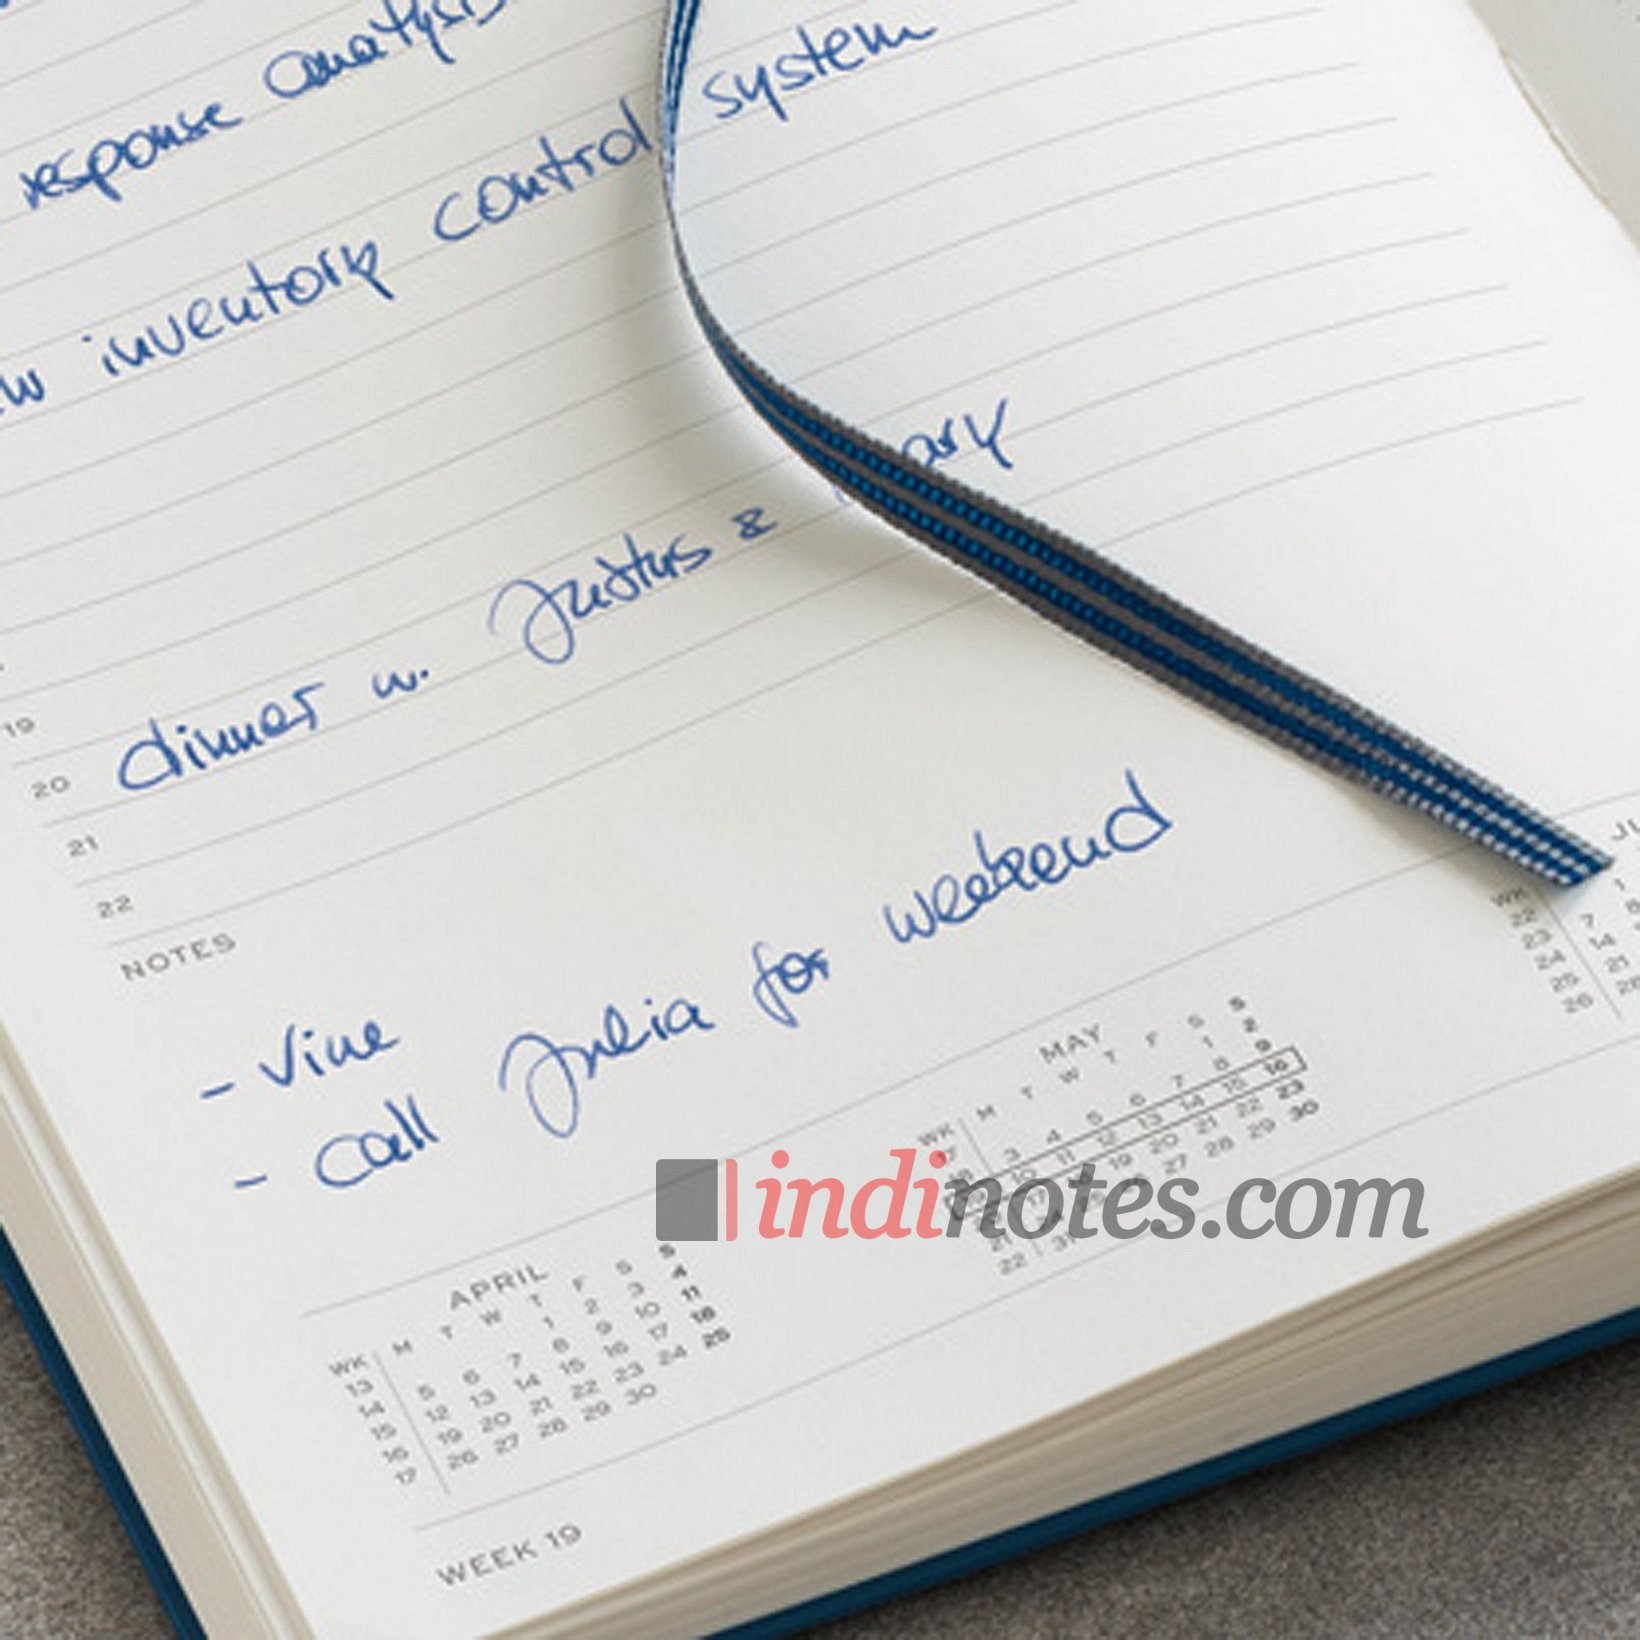 response analysis
inventory control system
19
20 dinner w. Justus &
21
22
NOTES
- Vine
- call Julia for weekend
indinotes.com
APRIL
WK M T W T F S S
13 1 2 3 4
14 5 6 7 8 9 10 11
15 12 13 14 15 16 17 18
16 19 20 21 22 23 24 25
17 26 27 28 29 30
MAY
WK M T W T F S S
17 1 2
18 3 4 5 6 7 8 9
10 11 12 13 14 15 16
20 17 18 19 20 21 22 23
21 24 25 26 27 28 29 30
22 31
WK
22
23
24
25
26
1
7 8
14
21
28
WEEK 19